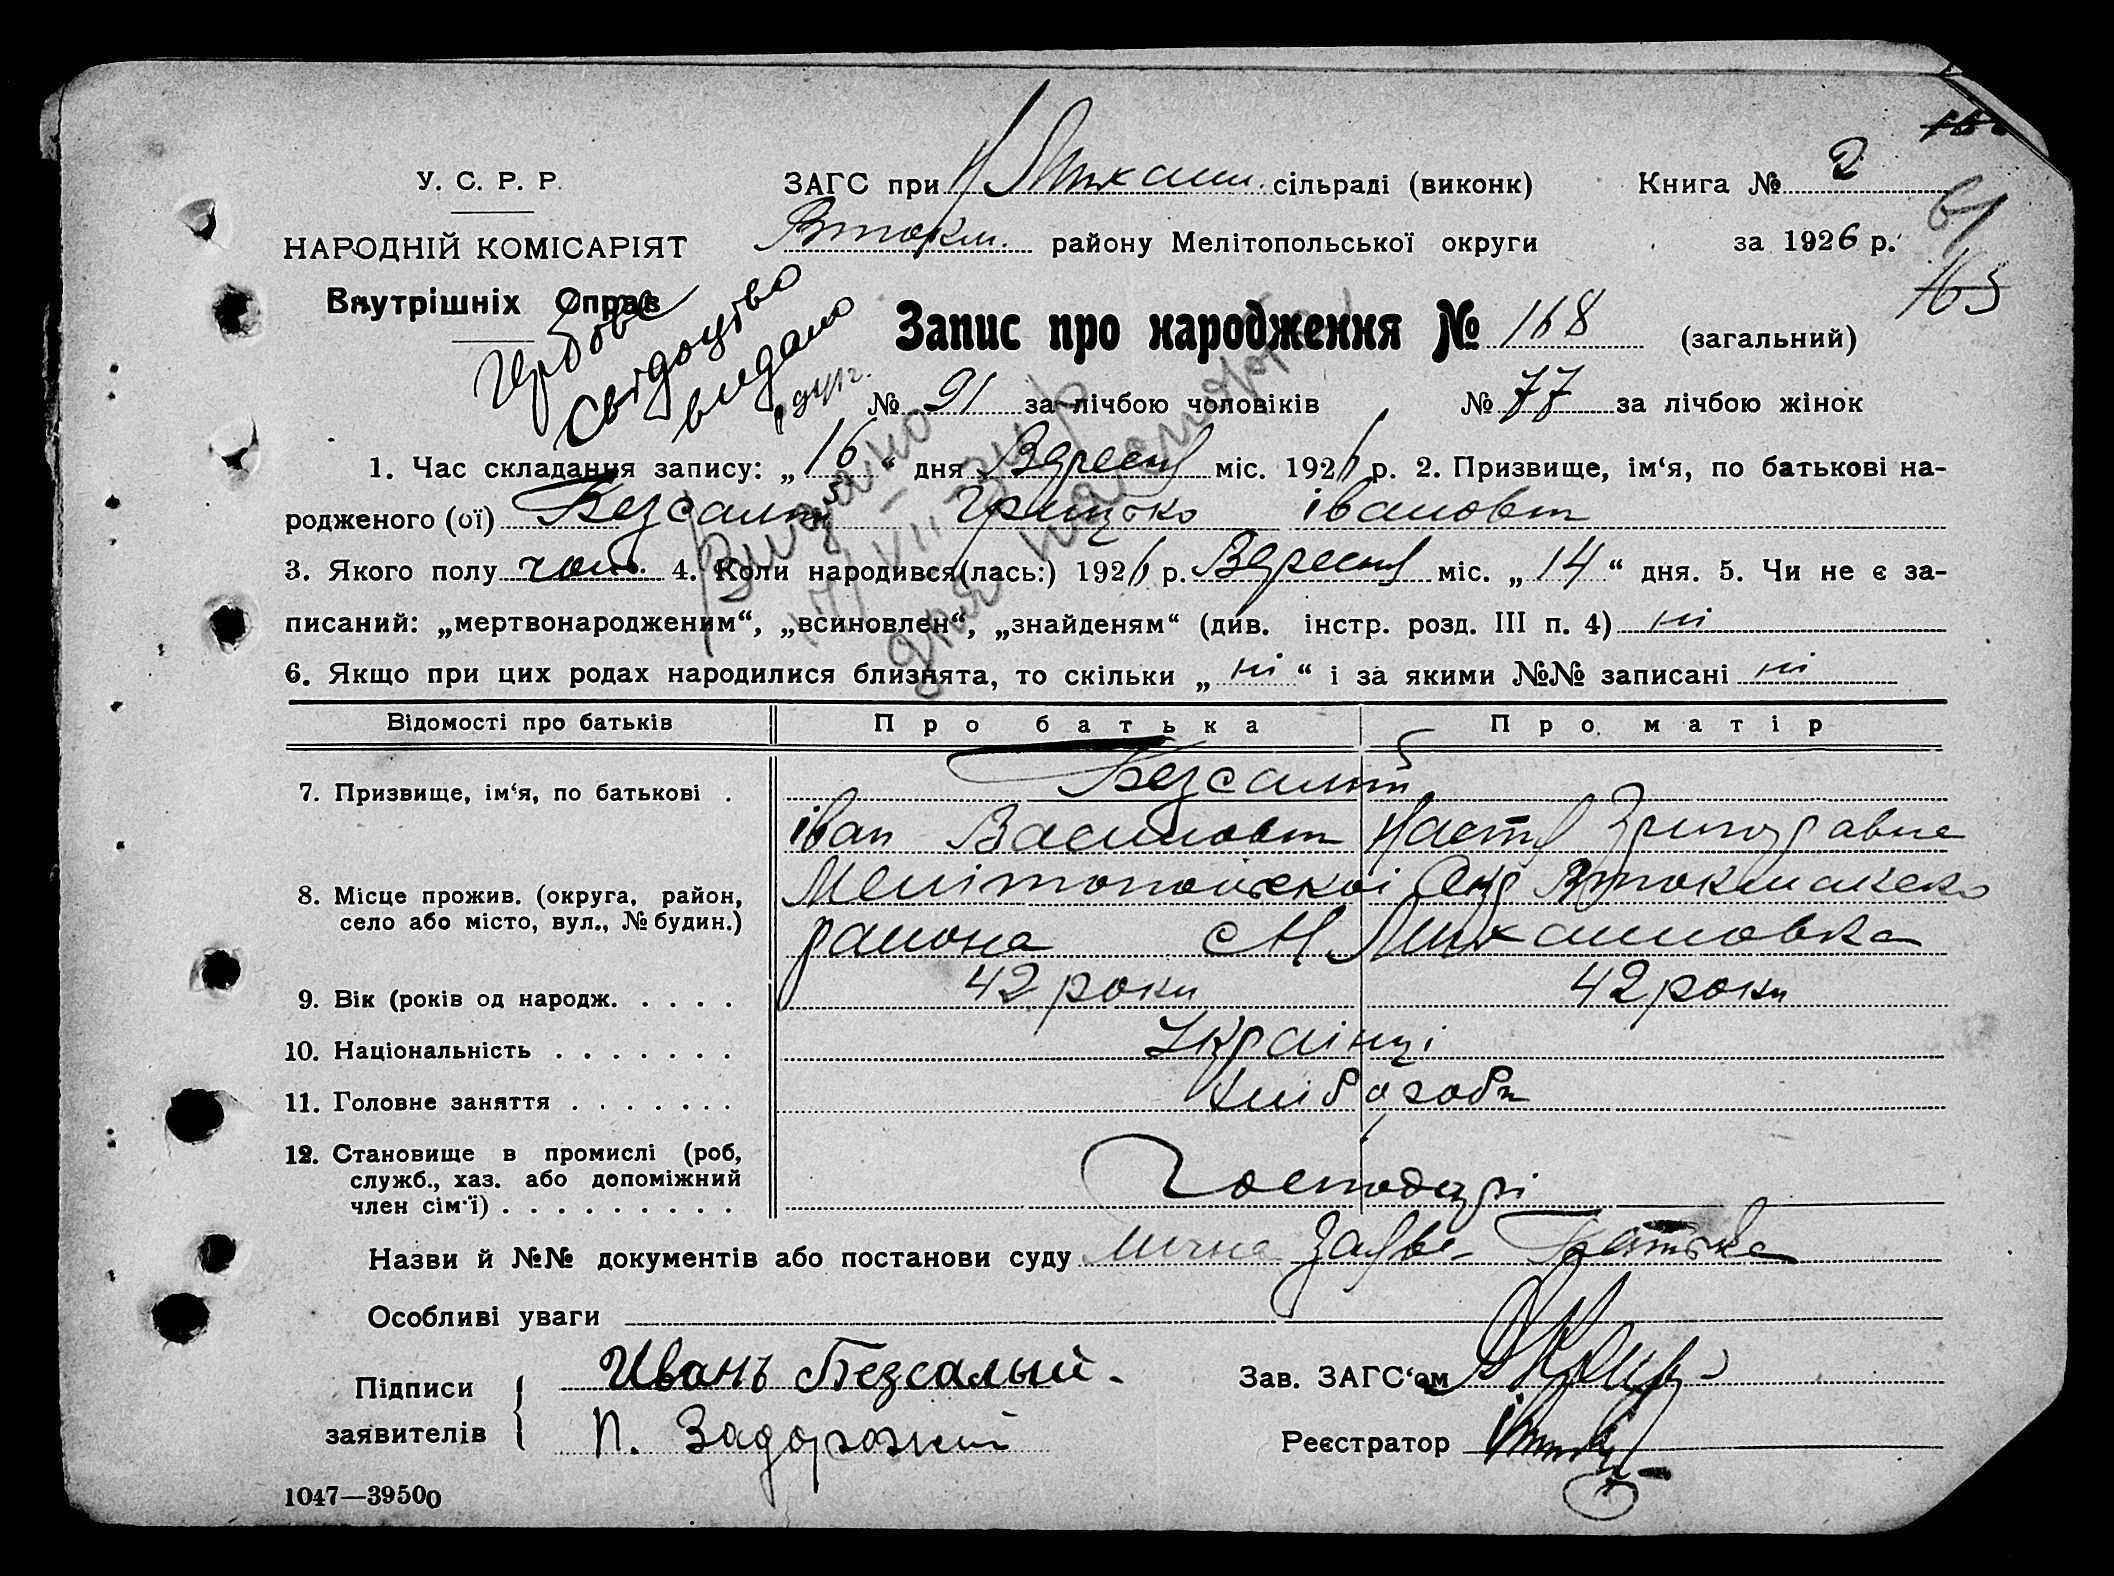 У. С. Р. Р.
НАРОДНІЙ КОМІСАРІЯТ
Внутрішніх Справ
ЗАГС при Н Михайл. сільраді (виконк)
Втокм. району Мелітопольської округи
Книга № 2
за 1926 р.
61
163
Свідоцтво
видано
Запис про народження № 168 (загальний)
№ 91 за лічбою чоловіків № 77 за лічбою жінок
Видано
для паспорту
1. Час складання запису: „16“ дня Вересня міс. 1926 р. 2. Призвище, ім‘я, по батькові на-
родженого (ої) Безсалий Грицько івановт
3. Якого полу чол. 4. Коли народився(лась:) 1926 р. Вересня міс. „14“ дня. 5. Чи не є за-
писаний: „мертвонародженим“, „всиновлен“, „знайденям“ (див. інстр. розд. III п. 4) ні
6. Якщо при цих родах народилися близнята, то скільки „ні“ і за якими №№ записані ні
Відомості про батьків Про батька Про матір
7. Призвище, ім‘я, по батькові . Безсалий
іван Василовт Настя Григоравна
8. Місце прожив. (округа, район, село або місто, вул., № будин.) Мелітопольскоі Окр Втокмакско
района с Н Михаиловка
9. Вік (років од народж. . . . . 42 роки 42 роки
10. Національність . . . . . . . Украінці
11. Головне заняття . . . . . . . Хлібороби
12. Становище в промислі (роб,
служб., хаз. або допоміжний
член сім‘ї) . . . . . . . . . Господарі
Назви й №№ документів або постанови суду лична заява Батька
Особливі уваги
Підписи
заявителів
Иванъ Безсалый.
П. Задорожній
Зав. ЗАГС‘ом
Реєстратор
1047—39500